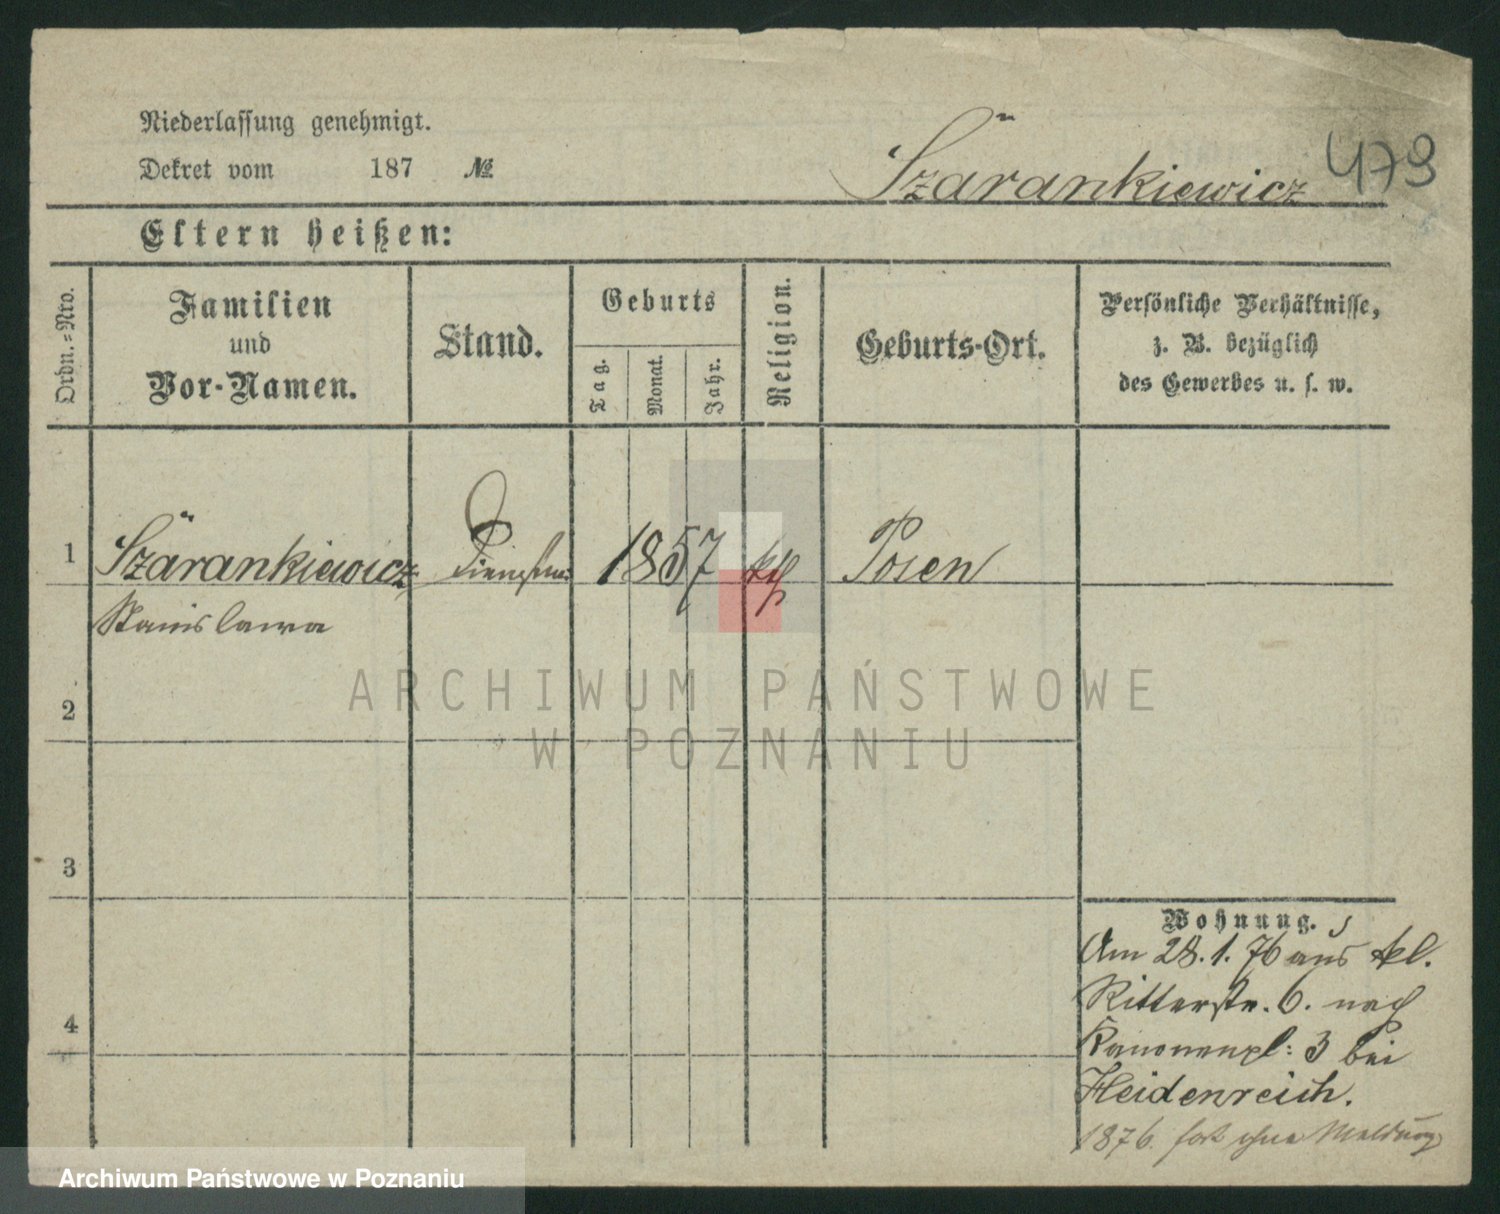 Niederlassung genehmigt.
Dekret vom 187 №
Szarankiewicz 479
Eltern heißen:
Ordn.-Nro.
Familien
und
Vor-Namen.
Stand.
Geburts
Tag.
Monat.
Jahr.
Religion.
Geburts-Ort.
Persönliche Verhältnisse,
z. B. bezüglich
des Gewerbes u. s. w.
1 Szarankiewicz 1857 kth Posen
Stanislawa
2
3
4
Wohnung.
Am 28.1.76 aus kl.
Ritterstr. 6. nach
Kanonenpl: 3 bei
Heidenreich.
1876. fort ohne Meldung
ARCHIWUM PAŃSTWOWE
W POZNANIU
Archiwum Państwowe w Poznaniu